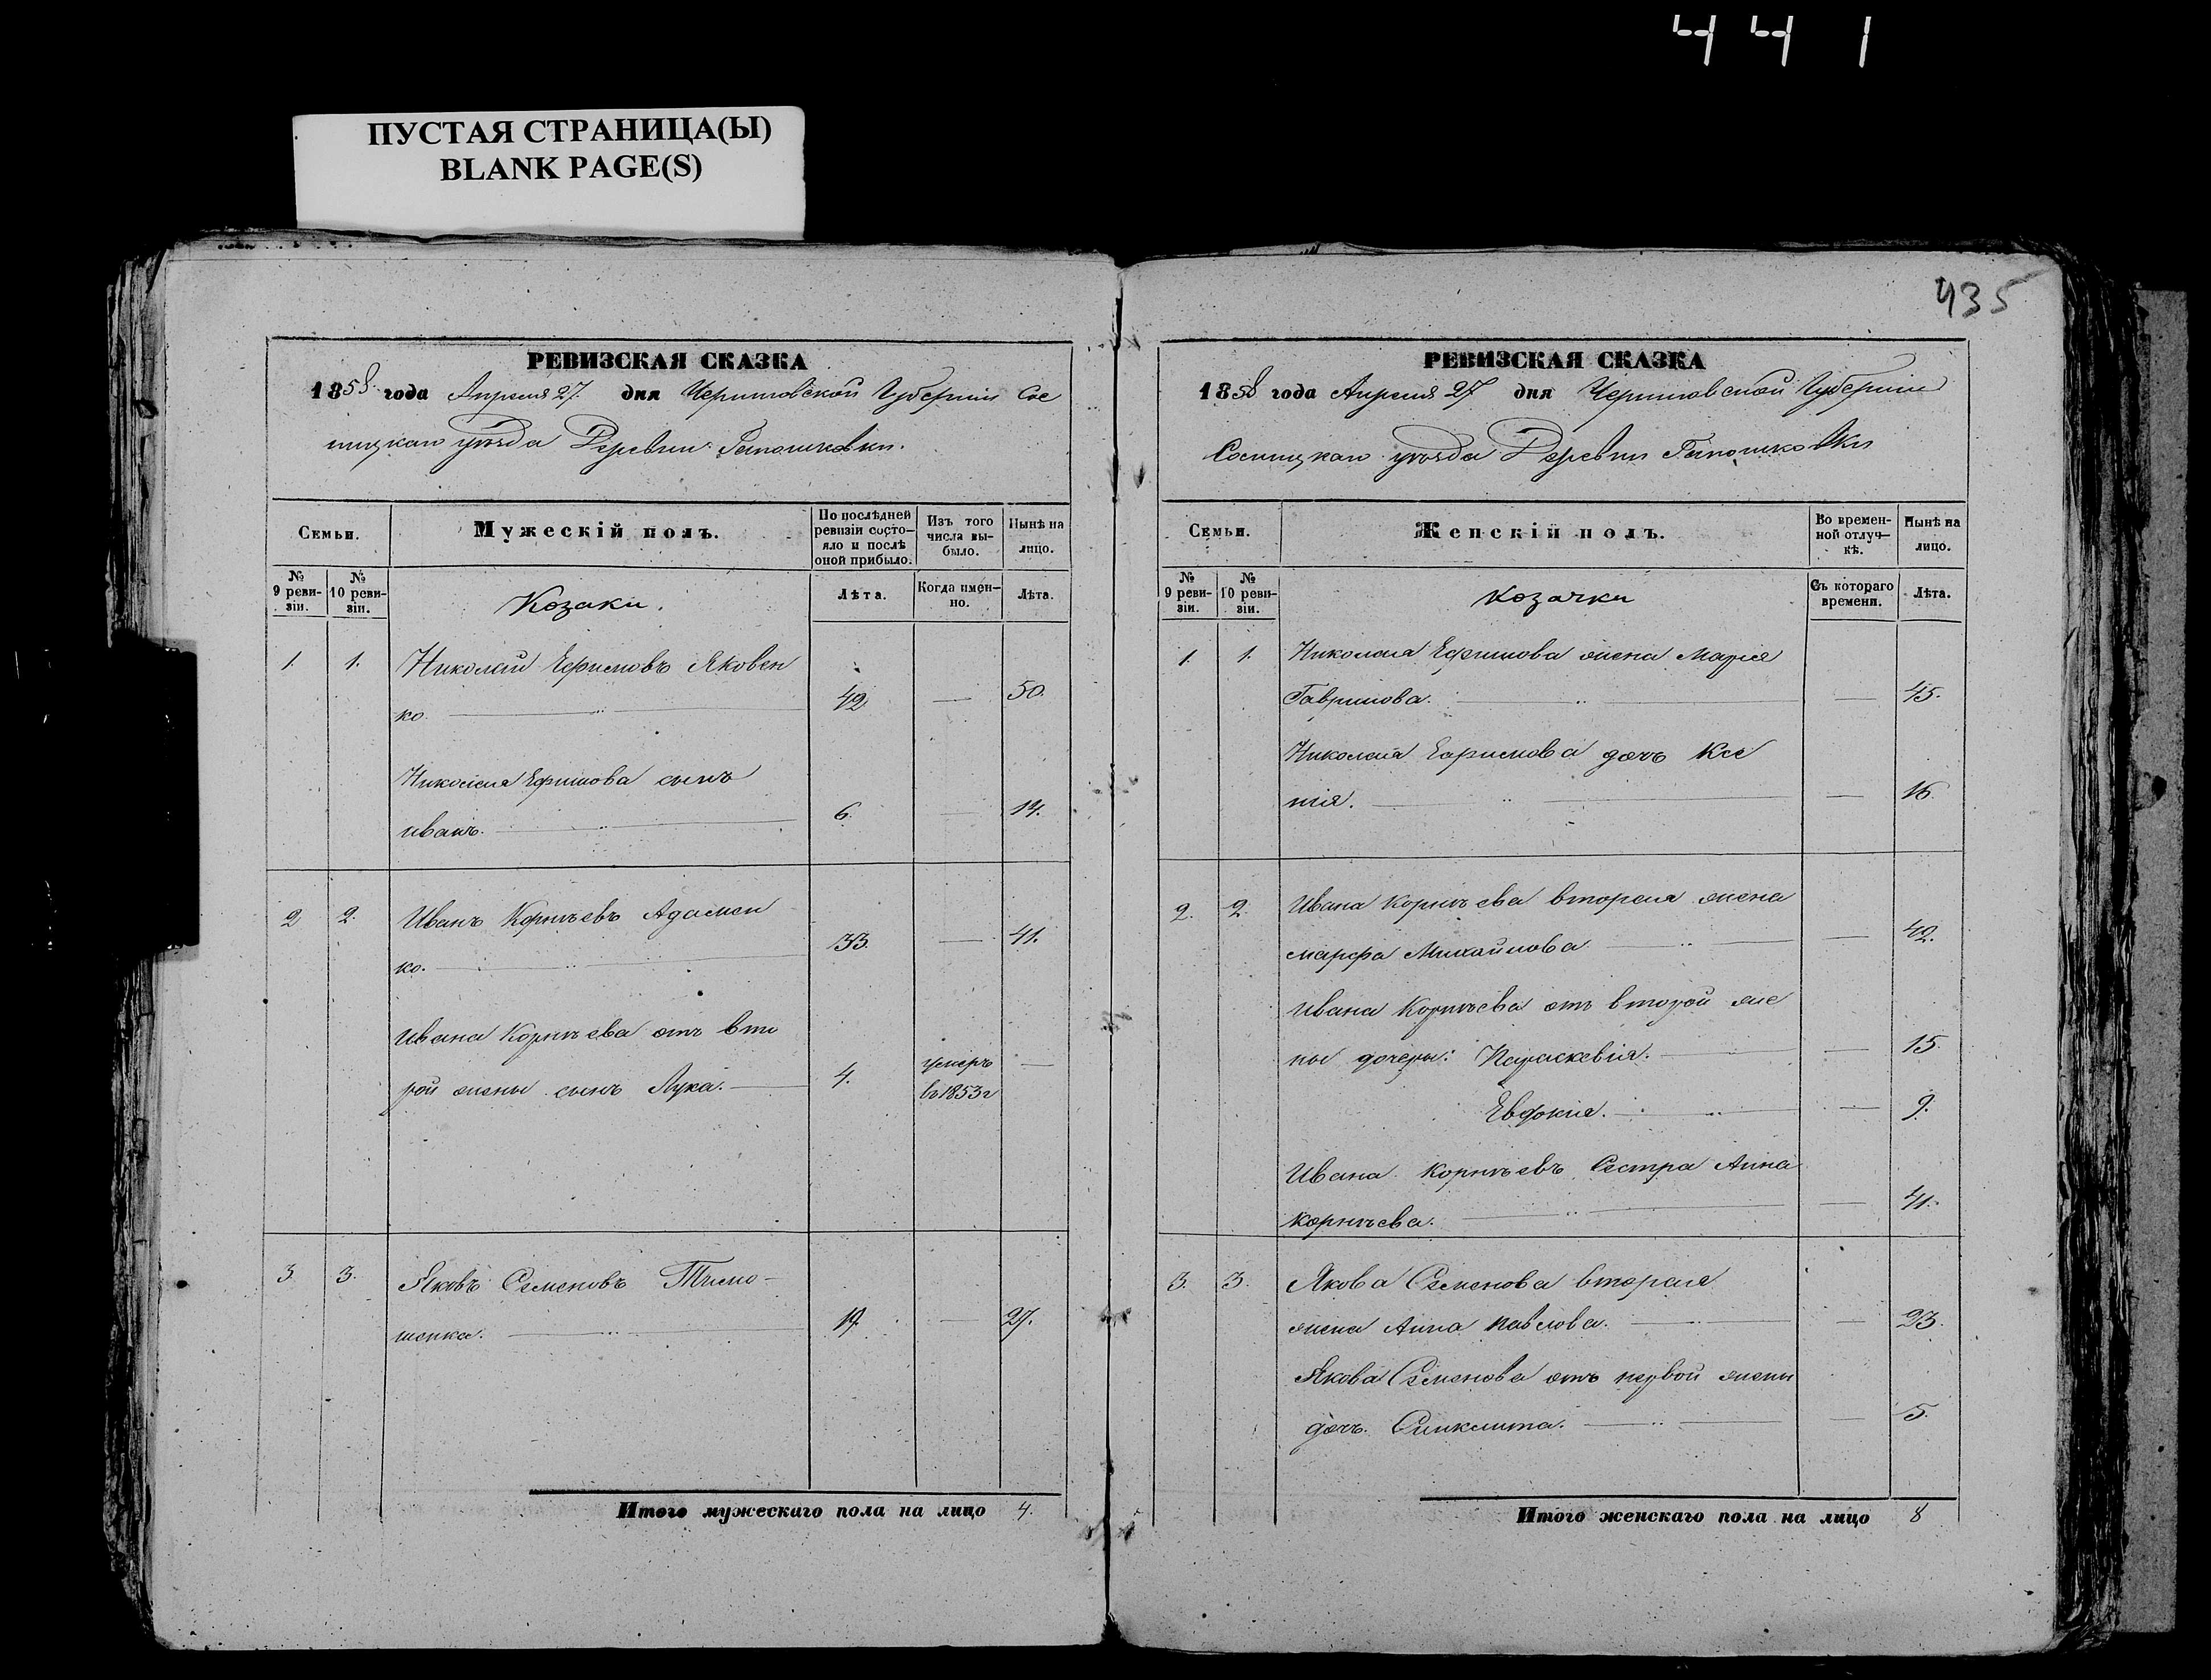 441
ПУСТАЯ СТРАНИЦА(Ы)
BLANK PAGE(S)
РЕВИЗСКАЯ СКАЗКА
1858 года Апреля 27 дня Черниговской Губернии Сос
ницкаго уѣзда Деревни
Семьи.
Мужескій полъ.
По послѣдней ревизіи состояло и послѣ оной прибыло.
Изъ того числа выбыло.
Нынѣ на лицо.
№ 9 ревизіи.
№ 10 ревизіи.
Козаки.
Лѣта.
Когда именно.
Лѣта.
1. 1. Николай Ефимовъ Яковен
ко. 42 — 50.
Николая Ефимова сынъ
иванъ. 6. — 14.
2 2. Иванъ Корнѣевъ Адамен
ко. 33. — 41.
Ивана Корнѣева отъ вто
рой жены сынъ Лука. 4. умеръ въ 1853 г —
3. 3. Яковъ Семеновъ Тимо-
шенко. 19. — 27.
Итого мужескаго пола на лицо 4.
435
РЕВИЗСКАЯ СКАЗКА
1858 года Апреля 27 дня Черниговской Губернии
Сосницкаго уѣзда Деревни
Семьи.
Женскій полъ.
Во временной отлучкѣ.
Нынѣ на лицо.
№ 9 ревизіи.
№ 10 ревизіи.
Козачки
Съ котораго времени.
Лѣта.
1. 1. Николая Ефимова жена Марія
Гаврилова. — 45.
Николая Ефимова дочь Ксе
нія. — 16.
2. 2. Ивана Корнѣева вторая жена
марфа Михайлова — 42.
Ивана Корнѣева отъ второй же
ны дочери: Параскевія. — 15.
Евдокія. — 9.
Ивана Корнѣевъ Сестра Анна
Корнѣева. — 41.
3. 3. Якова Семенова вторая
жена Анна Павлова. — 23.
Якова Семенова отъ первой жены
дочь. Синклита. — 5.
Итого женскаго пола на лицо 8